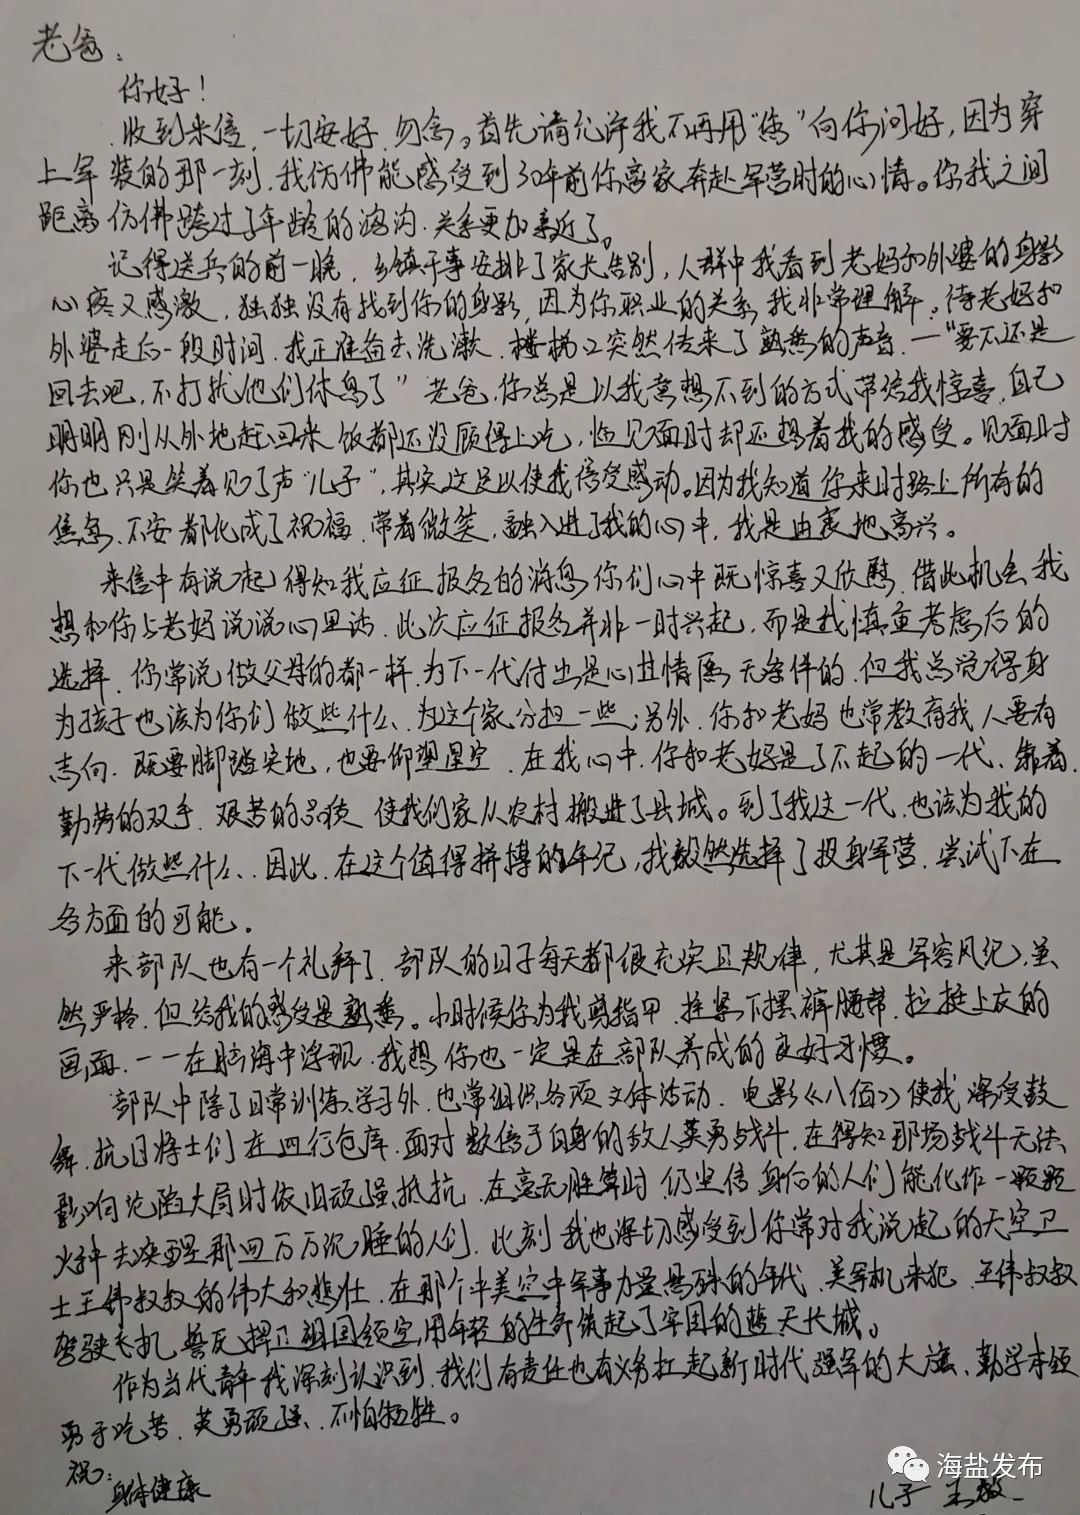 老爸：
你好！
收到来信，一切安好，勿念。首先请允许我不再用“您”向你问好，因为穿
上军装的那一刻，我仿佛能感受到30年前你离家奔赴军营时的心情。你我之间
距离仿佛跨过了年龄的鸿沟，关系更加亲近了。
记得送兵的前一晚，乡镇干事安排了家长告别，人群中我看到老妈和外婆的身影
心疼又感激，独独没有找到你的身影，因为你职业的关系，我非常理解。待老妈和
外婆走后一段时间，我正准备去洗漱，楼梯口突然传来了熟悉的声音，一“要不还是
回去吧，不打扰他们休息了”老爸，你总是以我意想不到的方式带给我惊喜，自己
明明刚从外地赶回来饭都还没顾得上吃，临见面时却还想着我的感受。见面时
你也只是笑着见了声“儿子”，其实这足以使我倍受感动。因为我知道你来时路上所有的
焦急、不安都化成了祝福，带着微笑，融入进了我的心中，我是由衷地高兴。
来信中有说起得知我应征报名的消息你们心中既惊喜又欣慰，借此机会我
想和你与老妈说说心里话，此次应征报名并非一时兴起，而是我慎重考虑后的
选择，你常说做父母的都一样，为下一代付出是心甘情愿无条件的，但我总觉得身
为孩子也该为你们做些什么、为这个家分担一些；另外，你和老妈也常教育我人要有
志向，既要脚踏实地，也要仰望星空，在我心中，你和老妈是了不起的一代、靠着
勤劳的双手，艰苦的品质使我们家从农村搬进了县城。到了我这一代，也该为我的
下一代做些什么、因此，在这个值得拼搏的年纪，我毅然选择了投身军营，尝试下在
各方面的可能。
来部队也有一个礼拜了，部队的日子每天都很充实且规律，尤其是军容风纪，虽
然严格，但给我的感受是熟悉。小时候你为我剪指甲，拴紧下摆裤腰带，拉挺上衣的
画面，一一在脑海中浮现，我想你也一定是在部队养成的良好习惯。
部队中除了日常训练、学习外，也常组织各项文体活动，电影《八佰》使我深受鼓
舞，抗日将士们在四行仓库，面对数倍于自身的敌人英勇战斗，在得知那场战斗无法
影响沦陷大局时依旧顽强抵抗，在毫无胜算时仍坚信身后的人们能化作一颗颗
火种去唤醒那四万万沉睡的人们，此刻我也深切感受到你常对我说起的天空卫
士王伟叔叔的伟大和悲壮，在那个中美空中军事力量悬殊的年代，美军机来犯，王伟叔叔
驾驶飞机，誓死捍卫祖国领空用年轻的生命筑起了牢固的蓝天长城。
作为当代青年我深刻认识到，我们有责任也有义务扛起新时代强军的大旗、勤学本领
勇于吃苦、英勇顽强、不怕牺牲。
祝：
身体健康
儿子 王毅
海盐发布